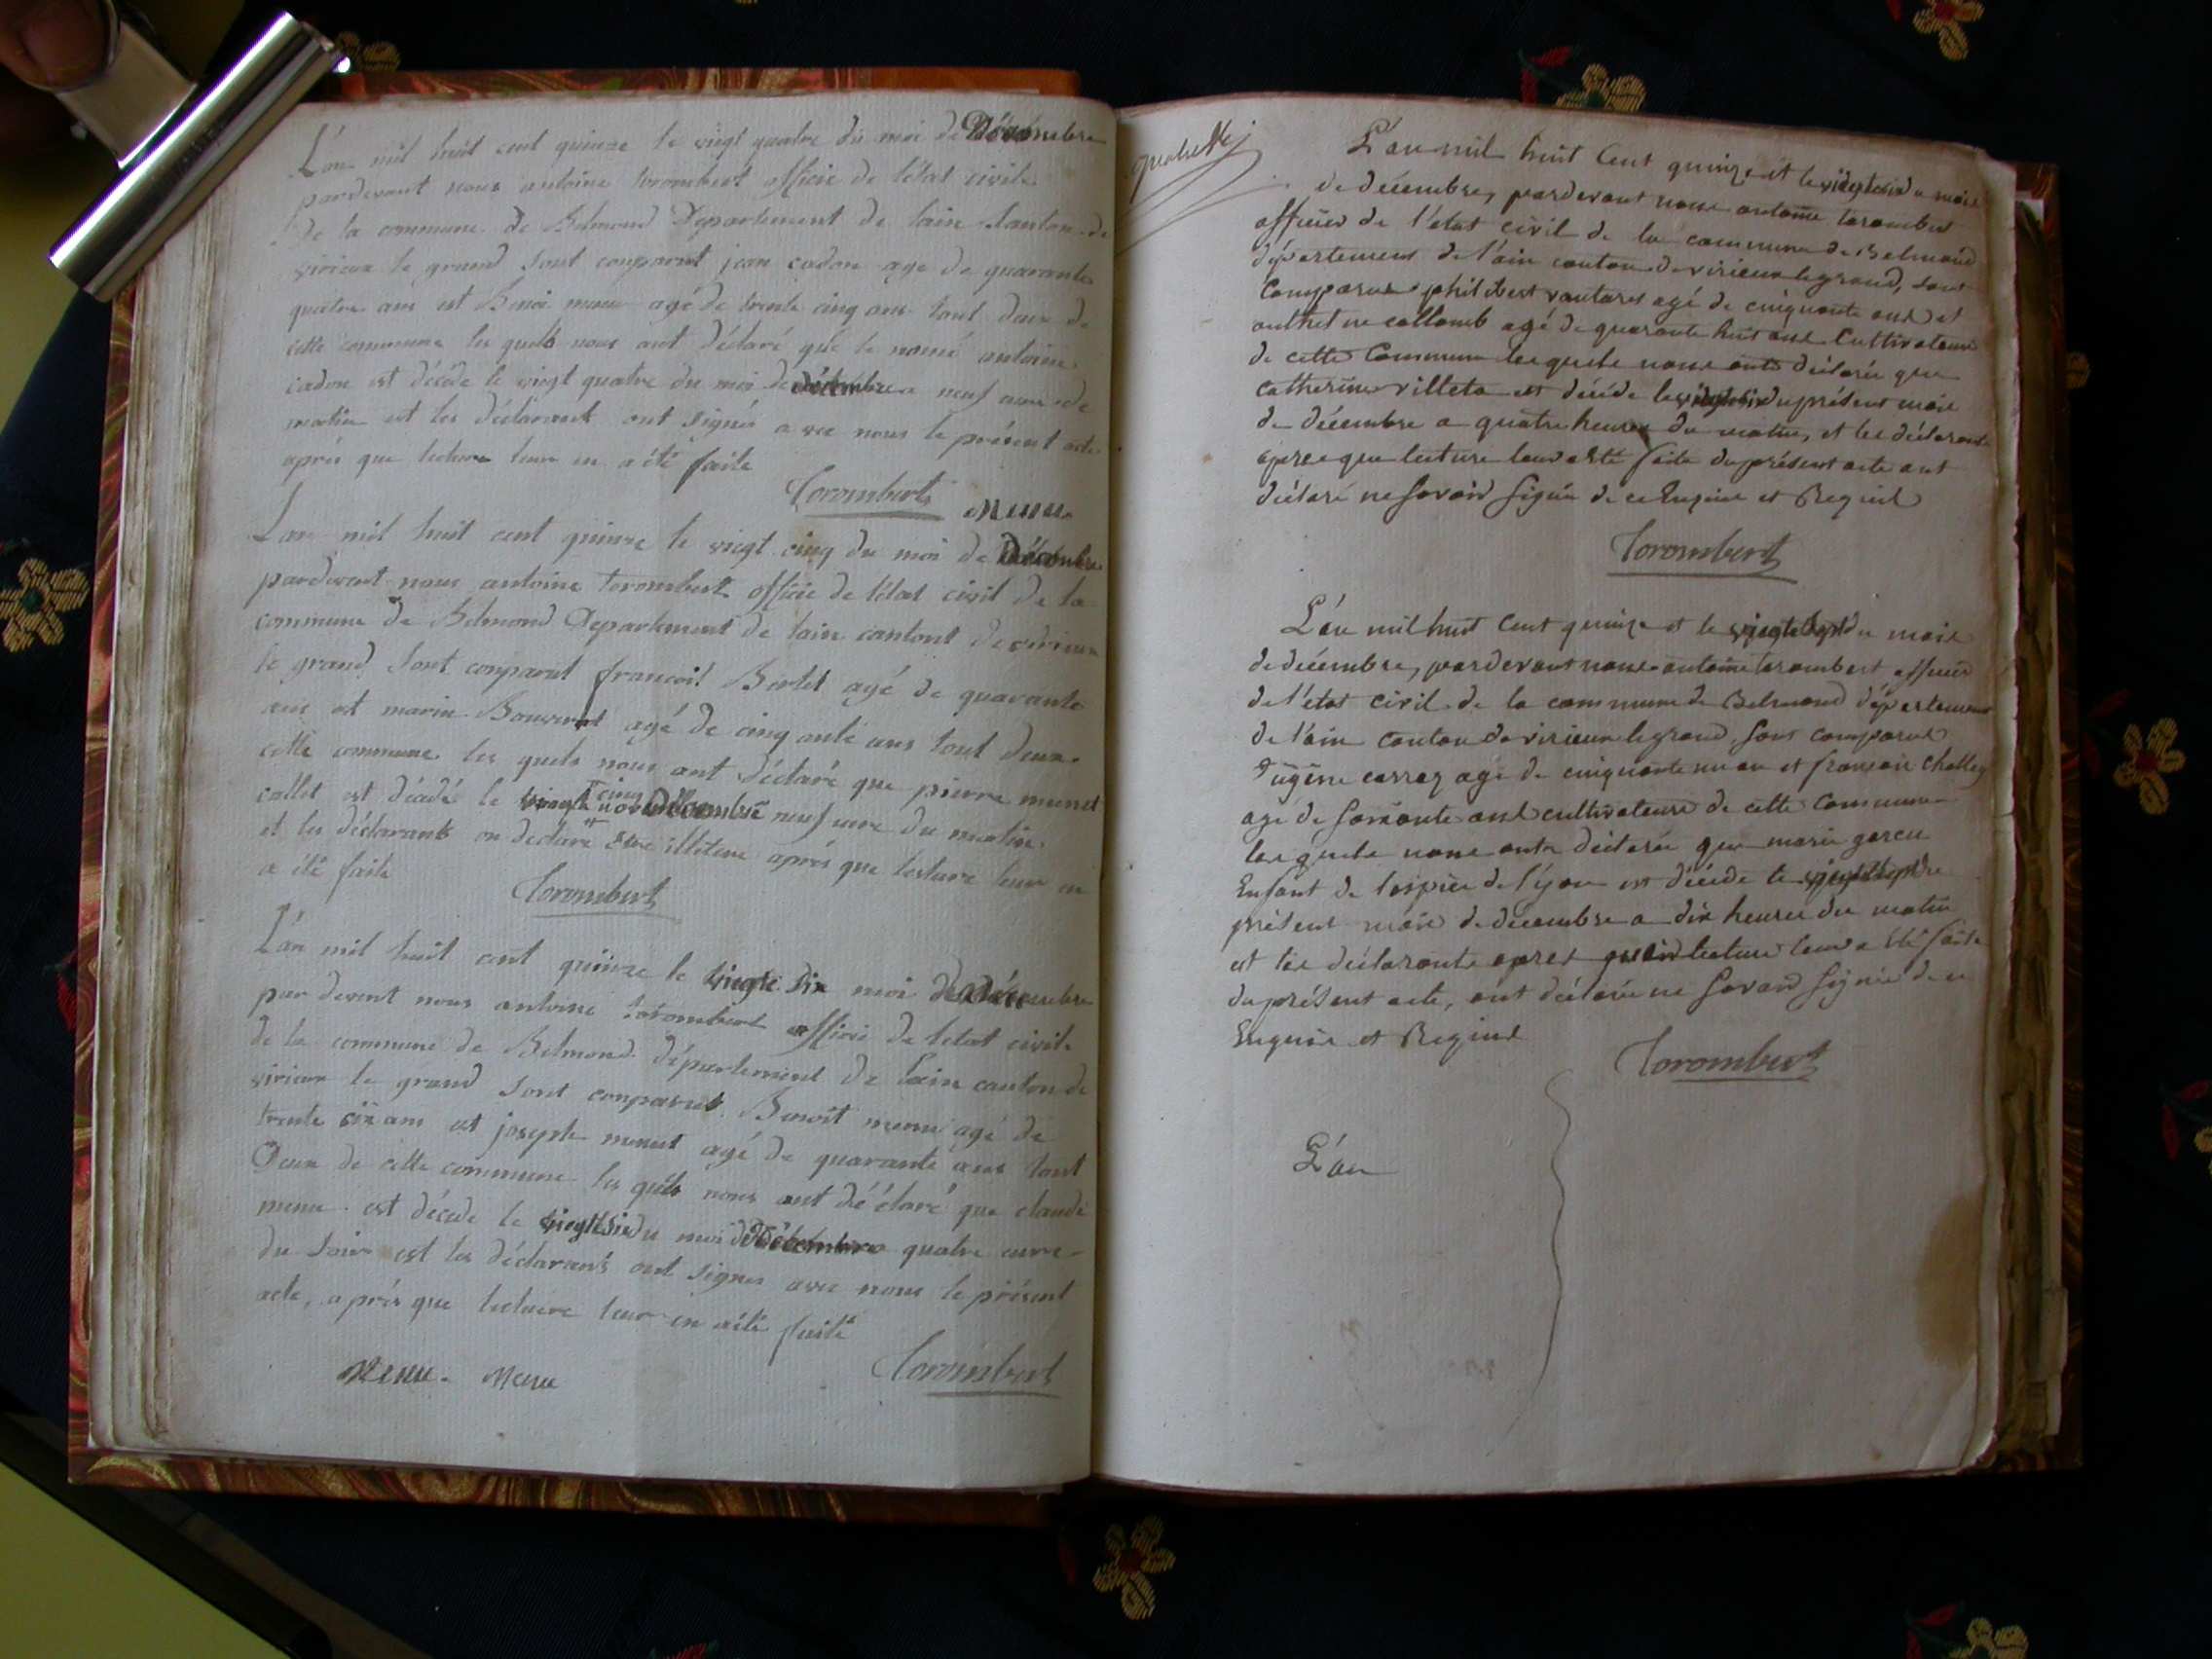 L'an mil huit cent quinze le vingt quatre du moi de Décembre
pardevant nous antoine torombert officie de l'état civile
De la commune de Belmond Departement de lain Canton de
virieux le grand sont conparut jean cadon age de quarante
quatre ans est Benoi menu agé de trente cinq ans tout deux de
cette commune les quels nous ont déclaré que le nomé antoine
cadon est décédé le vingt quatre du moi de décembre a neuf eure de
matin est les déclarant ont signés avec nous le présent acte
aprés que lecture leur en a été faite
Torombert Menu
Lan mil huit cent quinze le vingt cinq du moi de Décembre
pardevant nous antoine torombert officie de l'état civil de la
commune de Belmond Departement de lain cantont de virieux
le grand sont conparut francoit Bertet agé de quarante
ans est marin Bouvrot agé de cinq ante ans tout deux
cette commune les quels nous ont déclaré que pierre munet
collet est décédé le vingt cinq Décembre neuf eure du matin
et les déclarants on declaré etre illiture aprés que lesture leur en
a été faite
Torombert
L'an mil huit cent quinze le vingt six moi de décembre
par devent nous antoine torombert officie de letat civil
de la commune de Belmond département de lain canton de
virieux le grand sont conparut Benoit menu agé de
trente six ans est joseph menut agé de quarante ans tout
Deux de cette commune les quels nous ont déclaré que claude
menu est décede le vingt six du moi de Décembre quatre eure
du soir est les déclarants ont signes avec nous le présent
acte, aprés que lecture leur en a été faite
Menu. Menu
Torombert
L'an mil huit Cent quinze et le vingt six du mois
de décembre, pardevant nous antoine torombert
officier de l'état civil de la commune de Belmond
département de l'ain canton de virieux legrand, sont
Comparus philibert vautaret agé de cinquante ans et
anthelme collomb agé de quarante huit ans Cultivateurs
de cette Commune lesquels nous ont déclarés que
Catherine villeta est décéde le vingt six du présent mois
de décembre a quatre heures du matin, et les déclarants
aprés que lecture leur a été faite du présent acte ont
déclaré ne savoir signér de ce Enquis et Requis
Torombert
L'an mil huit Cent quinze et le vingt sept du mois
de décembre, pardevant nous antoine torombert officier
de l'état civil de la commune de Belmond département
de l'ain canton de virieux legrand, sont comparus
Eugène carraz agé de cinquante un an et françois challey
agé de soixante ans cultivateurs de cette Commune
lesquels nous ont déclarés que marie garcin
Enfant de l'ospice de lyon est décéde le vingt sept du
présent mois de décembre a dix heures du matin
et les déclarants apres que lecture leur a été faite
du présent acte, ont déclarés ne savoir signér de ce
Enquis et Requis
Torombert
L'an